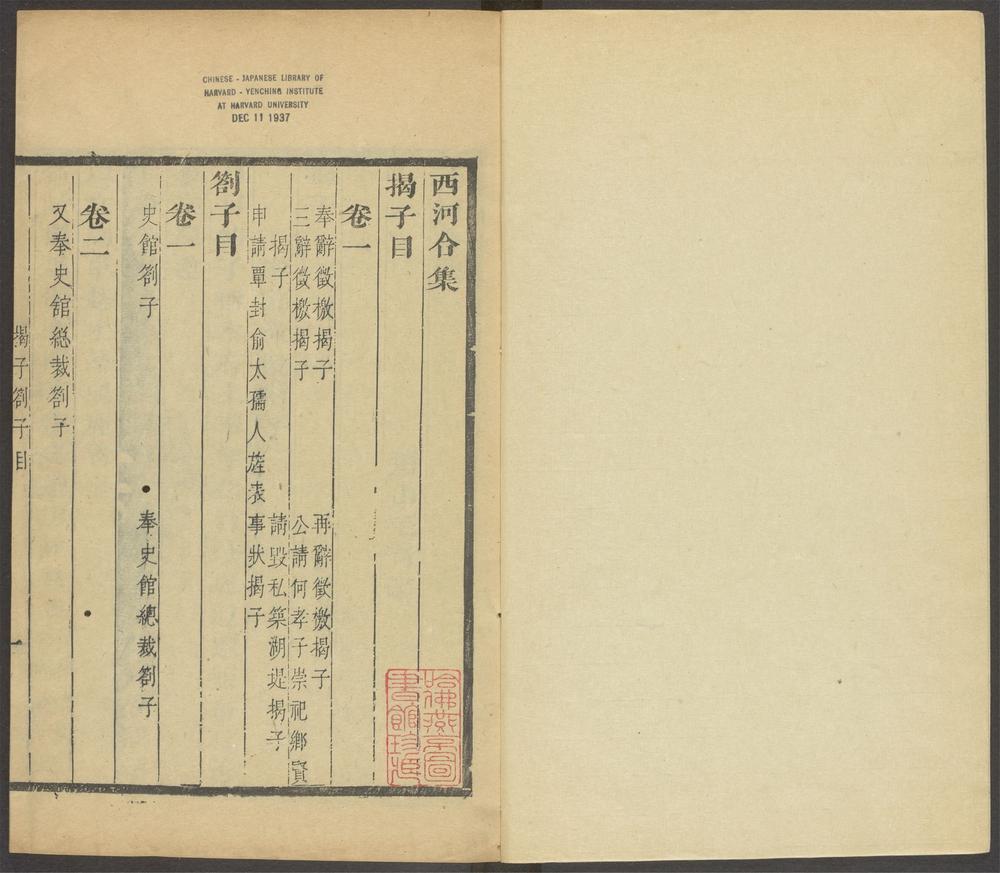 CHINESE - JAPANESE LIBRARY OF
HARVARD - YENCHING INSTITUTE
AT HARVARD UNIVERSITY
DEC 11 1937
西河合集
揭子目
卷一
奉辭徵檄揭子 再辭徵檄揭子
三辭徵檄揭子 公請何孝子崇祀鄉賢
揭子 請毀私築湖堤揭子
申請覃封俞太孺人旌表事狀揭子
劄子目
卷一
史館劄子 奉史館總裁劄子
卷二
又奉史館總裁劄子
揭子劄子目
一
哈佛燕京圖
書館珍藏